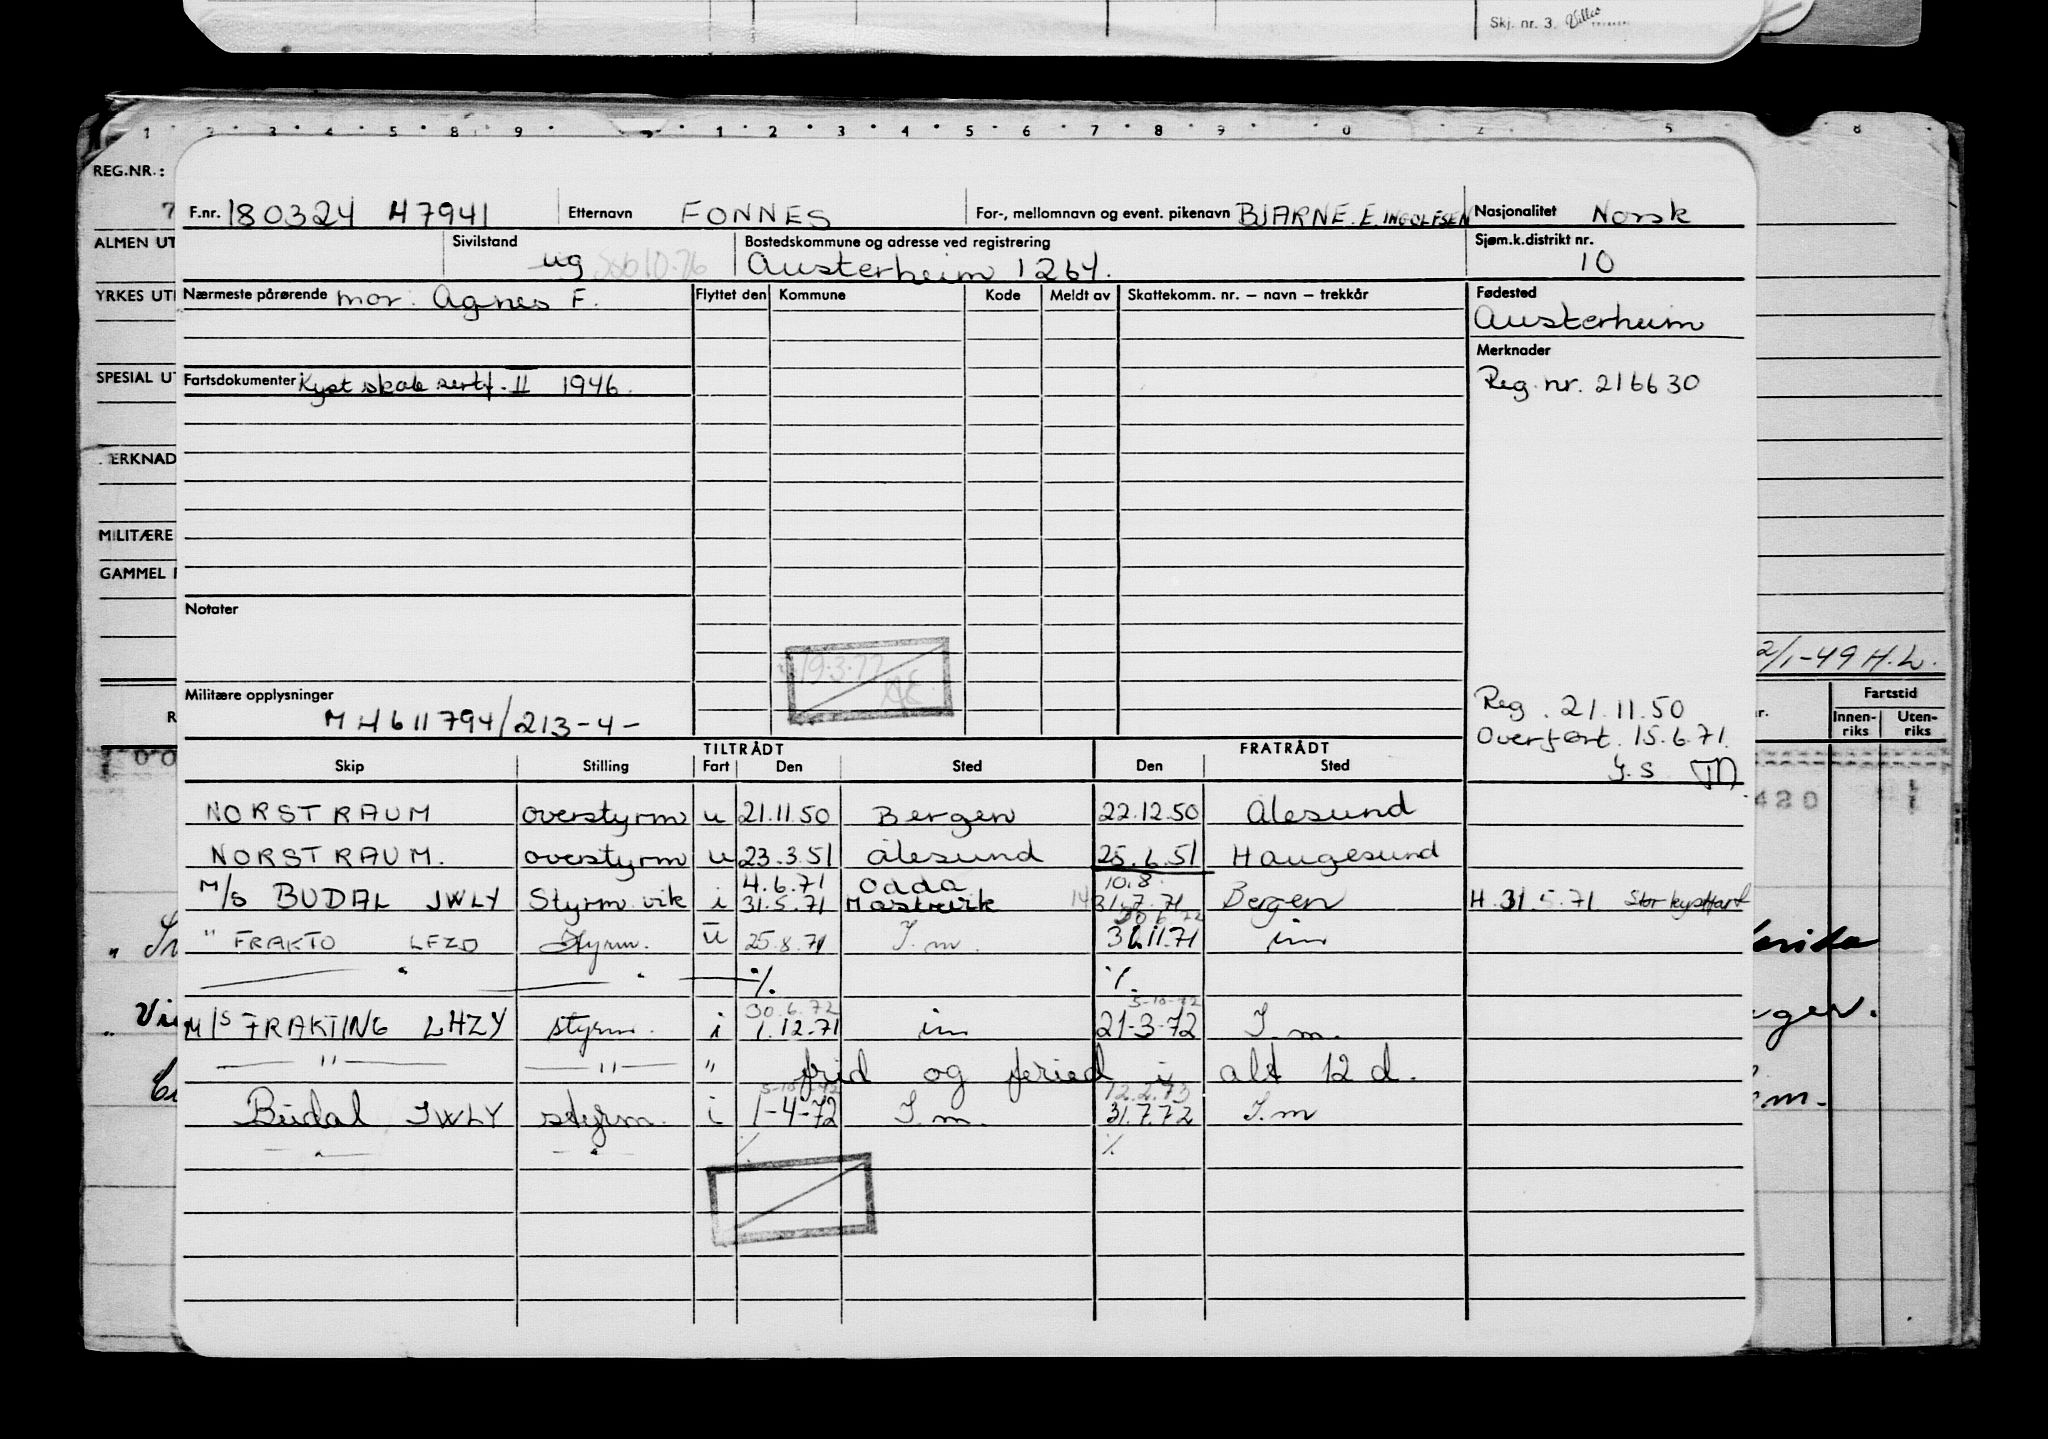 Skj. nr. 3.
REG.NR.:
F.nr. 180324 47941 Etternavn FONNES For-, mellomnavn og event. pikenavn BJARNE. E. INGOLFSEN Nasjonalitet Norsk
ALMEN UT
Sivilstand ug Bostedskommune og adresse ved registrering Austerheim 1264. Sjøm.k.distrikt nr. 10
YRKES UT
Nærmeste pårørende mor. Agnes F. Flyttet den Kommune Kode Meldt av Skattekomm. nr. – navn – trekkår Fødested Austerheim
Merknader
SPESIAL UT
Fartsdokumenter Kyst skole sertf. II 1946. Reg. nr. 216630
ERKNAD
MILITÆRE
GAMMEL
Notater
19.3.77
2/1-49 H.L.
Militære opplysninger
M 4611794/213-4-
Reg. 21.11.50
Overført. 15.6.71.
J.S.
Fartstid
Innen-riks Uten-riks
TILTRÅDT FRATRÅDT
Skip Stilling Fart Den Sted Den Sted
NORSTRAUM overstyrm u 21.11.50 Bergen 22.12.50 Ålesund
NORSTRAUM. overstyrm u 23.3.51 Ålesund 25.6.51 Haugesund
4.6.71 Odda 10.8.
M/S BUDAL JWLY Styrm. vik i 31.5.71 Mastrevik 31.7.71 Bergen H. 31.5.71 Stor kystfart
" FRAKTO LFZD Styrm. u 25.8.71 I.m. 31.11.71 im
— " — — " — % %
30.6.72 5-10-72
M/S FRAKTING LHZY styrm. i 1.12.71 im 21-3-72 I.m.
— " — — " — " frid og feried i alt 12 d.
5-10-72 12.2.73
Budal JWLY styrm. i 1-4-72 I.m. 31.7.72 I.m
— " — — " — % %